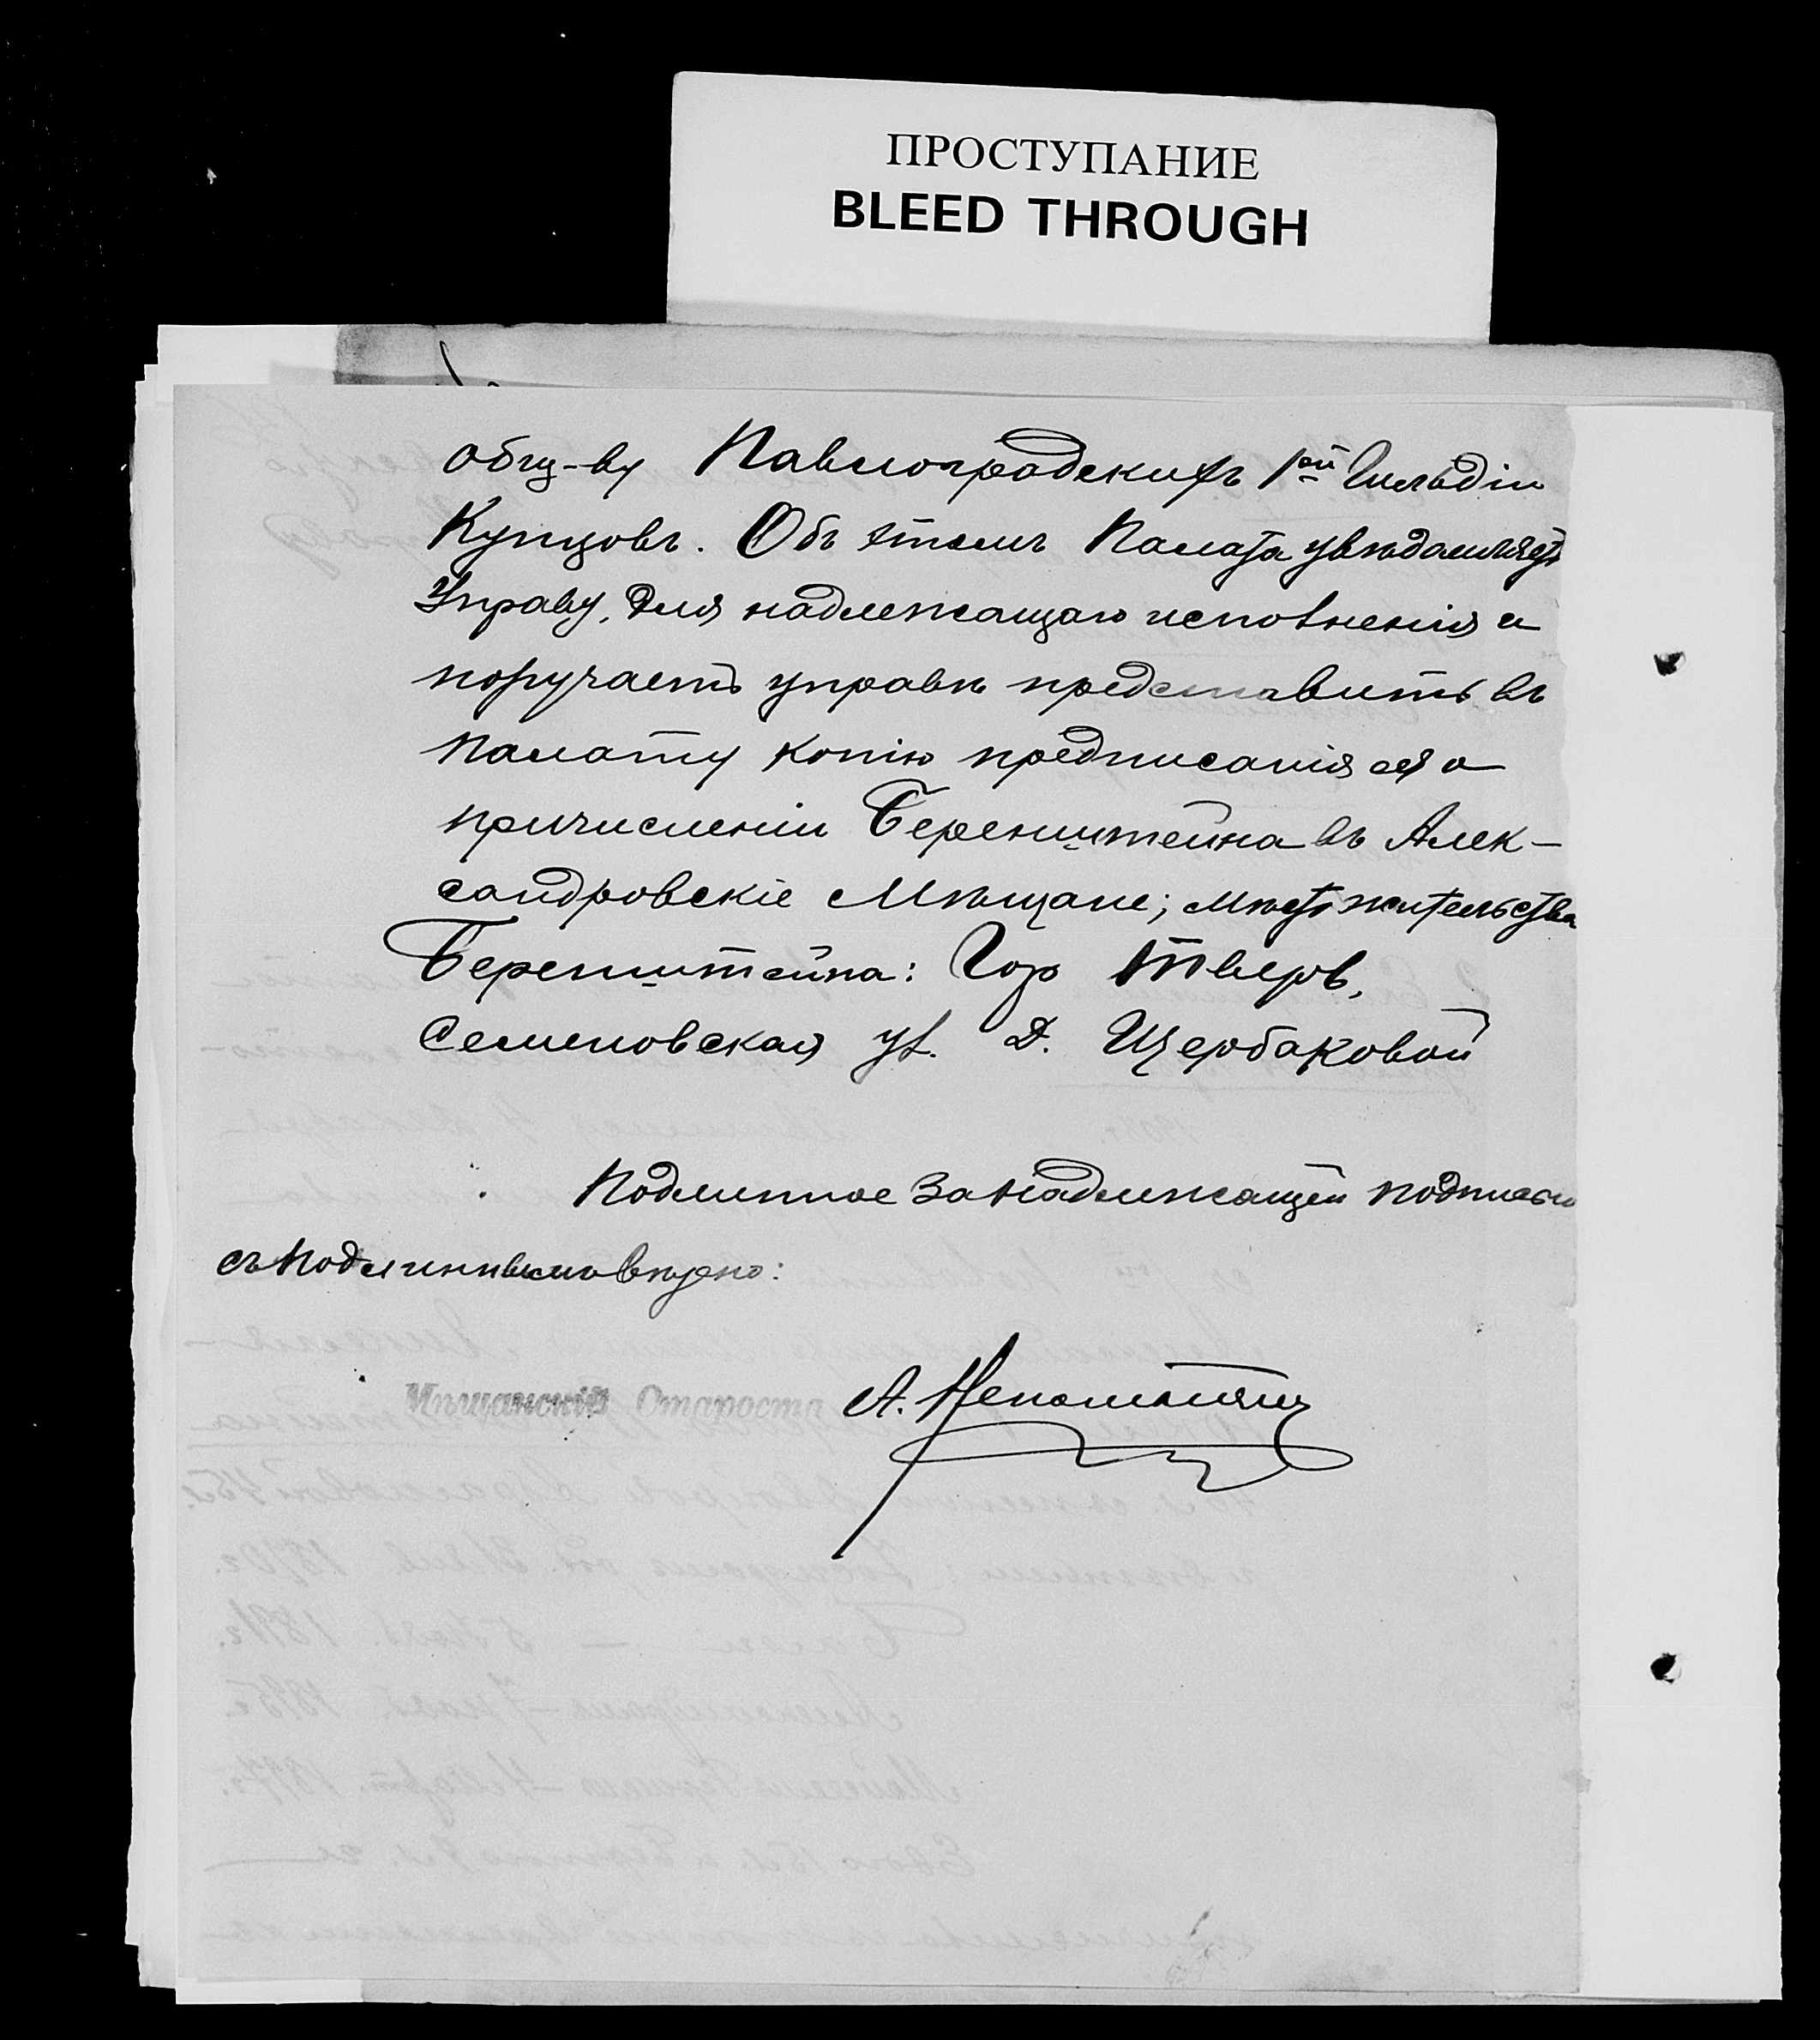 ПРОСТУПАНИЕ
BLEED THROUGH
общ-ву Павлоградскихъ 1ой Гильдіи
Купцовъ. Объ этомъ Палата увѣдомляетъ
Управу, для надлежащаго исполненія и
поручаетъ управѣ представить въ
палату копію предписанія ея о
причисленіи Беренштейна въ Алек-
сандровскіе Мѣщане; мѣсто жительства
Беренштейна: Гор Тверь,
Семеновская ул. Д. Щербаковой
Подлинное за надлежащей подписью
съ подлиннымъ вѣрно:
Мѣщанскій Староста А.